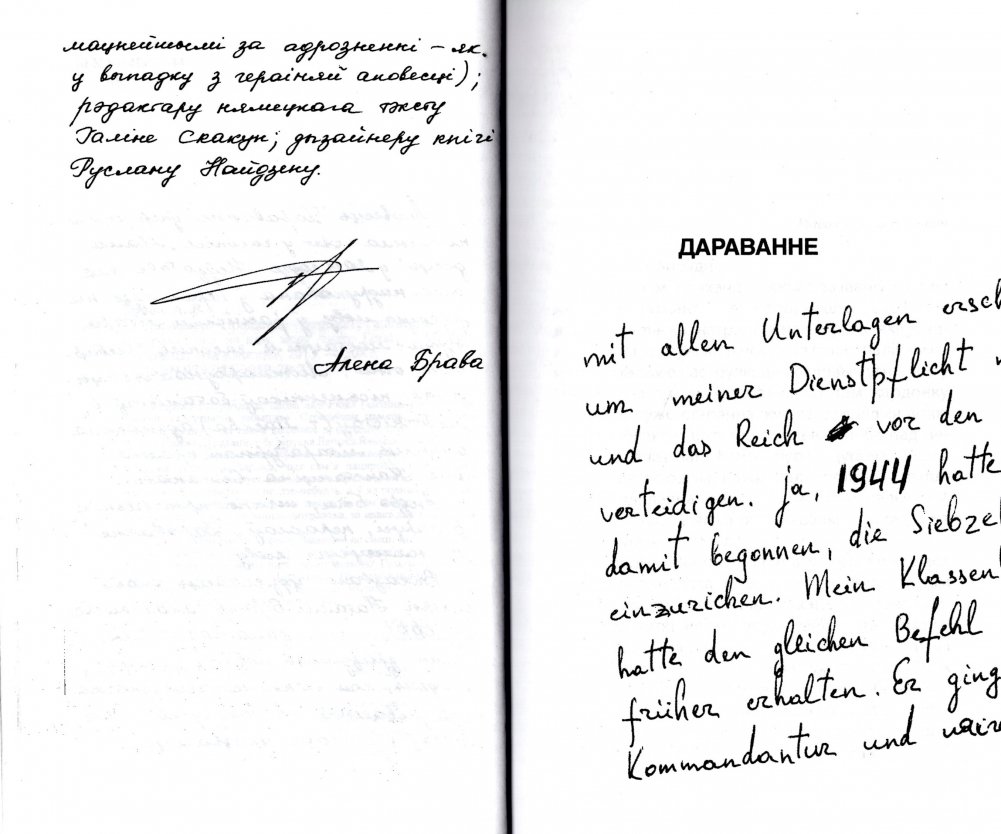 мацнейшымі за адрозненні – як
у выпадку з гераіняй аповесці);
рэдактару нямецкага тэксту
Галіне Скакун; дызайнеру кнігі
Руслану Найдзену.
Алена Брава
ДАРАВАННЕ
mit allen Unterlagen ersch
um meiner Dienstpflicht
und das Reich vor den
verteidigen. Ja, 1944 hatte
damit begonnen, die Siebze
einzuzichen. Mein Klassen
hatte den gleichen Befehl
früher erhalten. Er ging
Kommandantur und